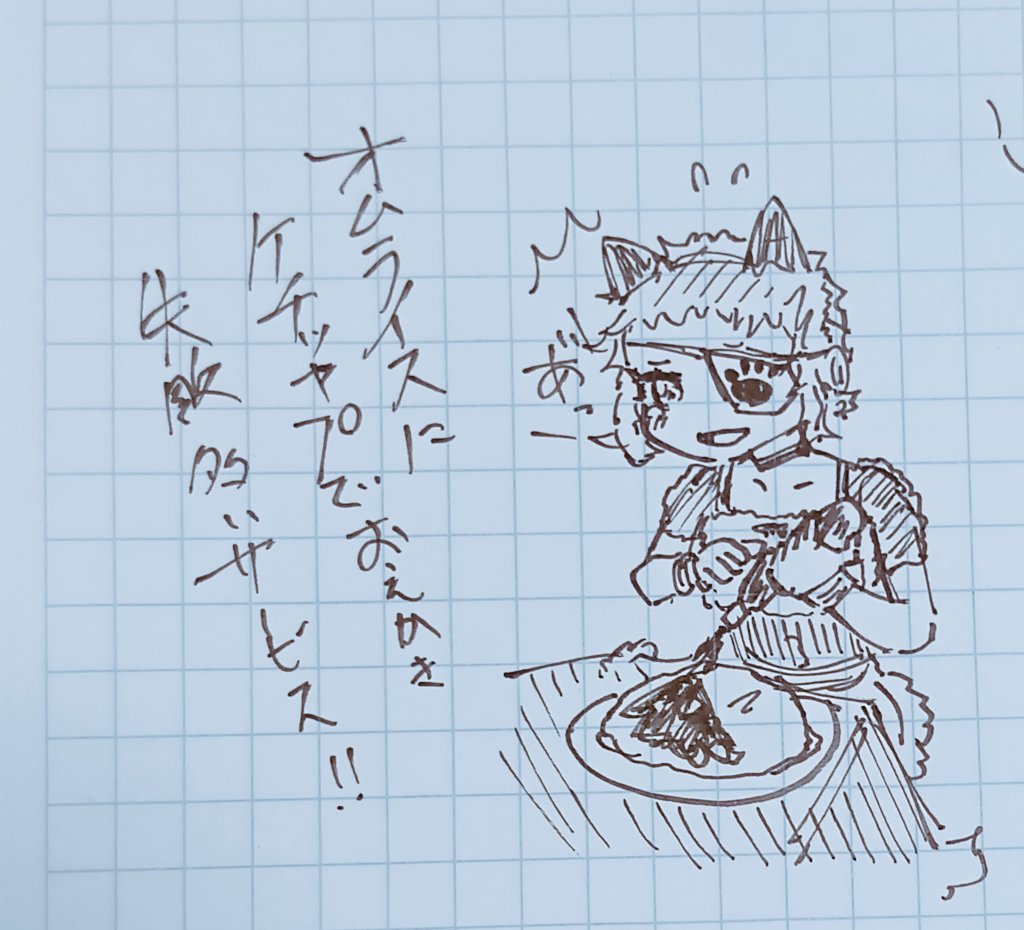 あ゛っ
オムライスに
ケチッャプでおえかき
失敗多ザビス!!